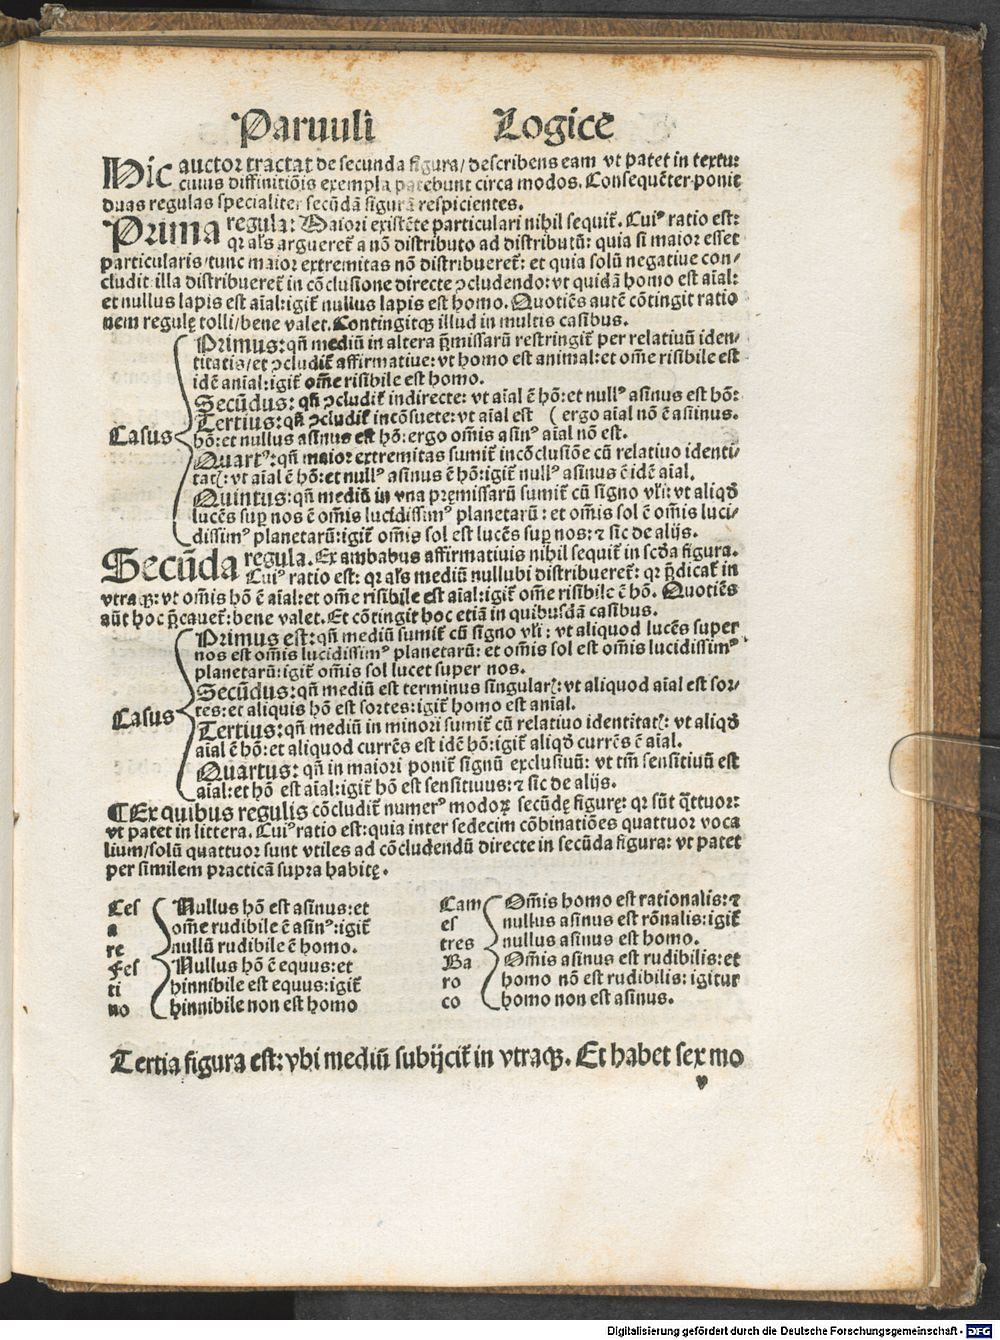 Paruuli Logice
Hic auctor tractat de secunda figura/ describens eam vt patet in textu:
cuius diffinitiõis exempla patebunt circa modos. Consequẽter ponit
duas regulas specialiter secũdã figurã respicientes.
Prima regula: Maiori existẽte particulari nihil sequit̃. Cuiꝰ ratio est:
qꝛ al's argueret̃ a nõ distributo ad distributũ: quia si maior esset
particularis/tunc maior extremitas nõ distribueret̃: et quia solũ negatiue con/
cludit illa distribueret̃ in cõclusione directe ꝯcludendo: vt quidã homo est aĩal:
et nullus lapis est aĩal: igit̃ nullus lapis est homo. Quotiẽs autẽ cõtingit ratio
nem regulę tolli/bene valet. Contingitqꝫ illud in multis casibus.
Casus
Primus: qñ mediũ in altera p̃missarũ restringit̃ per relatiuũ iden/
titatis/et ꝯcludit̃ affirmatiue: vt homo est animal: et om̃e risibile est
idẽ anĩal: igit̃ om̃e risibile est homo.
Secũdus: qñ ꝯcludit̃ indirecte: vt aĩal ẽ hõ: et nullꝰ asinus est hõ:
Tertius: qñ ꝯcludit̃ incõsuete: vt aĩal est ( ergo aĩal nõ ẽ asinus.
hõ: et nullus asinus est hõ: ergo om̃is asinꝰ aĩal nõ est.
Quartꝰ: qñ maior extremitas sumit̃ incõclusiõe cũ relatiuo identi/
tatꝭ: vt aĩal ẽ hõ: et nullꝰ asinus ẽ hõ: igit̃ nullꝰ asinus ẽ idẽ aĩal.
Quintus: qñ mediũ in vna pręmissarũ sumit̃ cũ signo vl'i: vt aliqd̃
lucẽs sup nos ẽ om̃is lucidissimꝰ planetarũ: et om̃is sol ẽ om̃is luci/
dissimꝰ planetarũ: igit̃ om̃is sol est lucẽs sup nos: ⁊ sic de alijs.
Secũda regula. Ex ambabus affirmatiuis nihil sequit̃ in scd̃a figura.
Cuiꝰ ratio est: qꝛ al's mediũ nullubi distribueret̃: qꝛ p̃dicat̃ in
vtraqꝫ: vt om̃is hõ ẽ aĩal: et om̃e risibile est aĩal: igit̃ om̃e risibile ẽ hõ. Quotiẽs
aũt hoc p̃cauet̃: bene valet. Et cõtingit hoc etiã in quibusdã casibus.
Casus
Primus est: qñ mediũ sumit̃ cũ signo vl'i: vt aliquod lucẽs super
nos est om̃is lucidissimꝰ planetarũ: et om̃is sol est om̃is lucidissimꝰ
planetarũ: igit̃ om̃is sol lucet super nos.
Secũdus: qñ mediũ est terminus singularꝭ: vt aliquod aĩal est sor/
tes: et aliquis hõ est sortes: igit̃ homo est anĩal.
Tertius: qñ mediũ in minori sumit̃ cũ relatiuo identitatꝭ: vt aliqd̃
aĩal ẽ hõ: et aliquod currẽs est idẽ hõ: igit̃ aliqd̃ currẽs ẽ aĩal.
Quartus: qñ in maiori ponit̃ signũ exclusiuũ: vt tm̃ sensitiuũ est
aĩal: et hõ est aĩal: igit̃ hõ est sensitiuus: ⁊ sic de alijs.
¶ Ex quibus regulis cõcludit̃ numerꝰ modoꝝ secũdę figurę: qꝛ sũt q̃ttuor:
vt patet in littera. Cuiꝰ ratio est: quia inter sedecim cõbinatiões quattuor voca
lium/solũ quattuor sunt vtiles ad cõcludendũ directe in secũda figura: vt patet
per similem practicã supra habitę.
Ces Nullus hõ est asinus: et
a om̃e rudibile ẽ asinꝰ: igit̃
re nullũ rudibile ẽ homo.
Fes Nullus hõ ẽ equus: et
ti hinnibile est equus: igit̃
no hinnibile non est homo
Cam Om̃is homo est rationalis: ⁊
es nullus asinus est rõnalis: igit̃
tres nullus asinus est homo.
Ba Om̃is asinus est rudibilis: et
ro homo nõ est rudibilis: igitur
co homo non est asinus.
Tertia figura est: vbi mediũ subijcit̃ in vtraqꝫ. Et habet sex mo
v
Digitalisierung gefördert durch die Deutsche Forschungsgemeinschaft - DFG